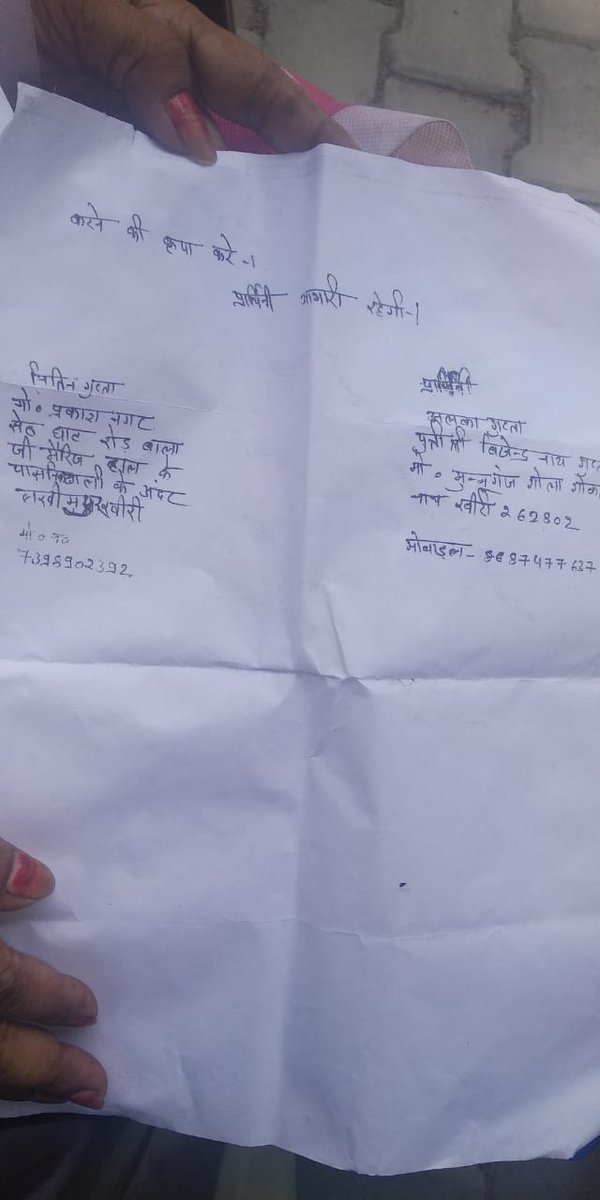 करने की कृपा करे-।
प्रार्थिनी आभारी रहेगी-।
नितिन गुप्ता
मो० प्रकाश नगर
सेठ घाट रोड बाला
जी मैरिज हाल के
पास गली के अंदर
लखीमपुर खीरी
मो० नं०
7398902392
प्रार्थिनी
अलका गुप्ता
पुत्री श्री विजेन्द्र नाथ
मो० मुन्नूगंज गोला
नाथ खीरी 262802
मोबाइल- 8687477637